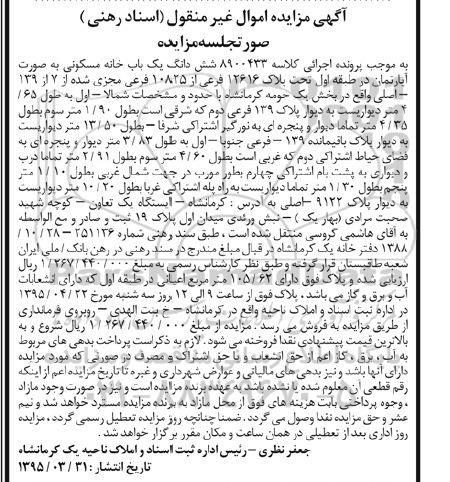 آگهی مزایده اموال غیر منقول (اسناد رهنی)
صورتجلسه مزایده
به موجب پرونده اجرائی کلاسه ۸۹۰۰۴۳۳ شش دانگ یک باب خانه مسکونی به صورت
آپارتمان در طبقه اول تحت پلاک ۱۲۶۱۶ فرعی از ۱۰۸۲۵ فرعی مجزی شده از ۷ از ۱۳۹
– اصلی واقع در بخش یک حومه کرمانشاه با حدود و مشخصات شمالا – اول به طول ۶۵ /
۴ متر دیواریست به دیوار پلاک ۱۳۹ فرعی دوم که شرقی است بطول ۹۰ / ۱ متر سوم بطول
۳۵ / ۴ متر تماما دیوار و پنجره ای به نورگیر اشتراکی شرقا – بطول ۵۰ / ۱۳ متر دیواریست
به دیوار پلاک باقیمانده ۱۳۹ – فرعی جنوبا – اول به طول ۸۳ / ۳ متر دیوار و پنجره ای به
فضای حیاط اشتراکی دوم که غربی است بطول ۶۰ / ۴ متر سوم بطول ۹۱ / ۲ متر تماما درب
و دیواری به پشت بام اشتراکی چهارم بطور مورب در جهت شمال غربی بطول ۱۰ / ۱ متر
پنجم بطول ۳۰ / ۱ متر تماما دیواریست به راه پله اشتراکی غربا بطول ۲۰ / ۱۰ متر دیواریست
به دیوار پلاک ۹۱۲۲ –اصلی به آدرس : کرمانشاه – ایستگاه یک تعاون – کوچه شهید
صحبت مرادی (بهار یک) – نبش ورندی میدان اول پلاک ۱۹ ثبت و صادر و مع الواسطه
به آقای هاشمی کروسی منتقل شده است ، طبق سند رهنی شماره ۲۵۱۱۳۶ – ۲۸ / ۱۱ /
۱۳۸۸ دفتر خانه یک کرمانشاه در قبال مبلغ مندرج در سند رهنی در رهن بانک / ملی ایران
شعبه طاقبستان قرار گرفته و طبق نظر کارشناس رسمی به مبلغ ۰۰۰/ ۴۴۰ / ۲۶۷/ ۱ ریال
ارزیابی شده و پلاک فوق دارای ۶۲ / ۱۰۵ متر مربع اعیانی در طبقه اول که دارای انشعابات
آب و برق و گاز می باشد ، پلاک فوق از ساعت ۹ الی ۱۲ روز سه شنبه مورخ ۲۲ / ۰۴ / ۱۳۹۵
در اداره ثبت اسناد و املاک ناحیه واقع در کرمانشاه – خ بنت الهدی – روبروی فرمانداری
از طریق مزایده به فروش می رسد . مزایده از مبلغ ۰۰۰/ ۴۴۰ / ۲۶۷ / ۱ ریال شروع و به
بالاترین قیمت پیشنهادی نقدا فروخته می شود . لازم به ذکر است پرداخت بدهی های مربوط
به آب ، برق ، گاز اعم از حق انشعاب و یا حق اشتراک و مصرف در صورتی که مورد مزایده
دارای آنها باشد و نیز بدهی های مالیاتی و عوارض شهرداری و غیره تا تاریخ مزایده اعم از اینکه
رقم قطعی آن معلوم شده یا نشده باشد به عهده برنده مزایده است و نیز در صورت وجود مازاد
، وجوه پرداختی بابت هزینه های فوق از محل مازاد به برنده مزایده مسترد خواهد شد و نیم
عشر و حق مزایده نقدا وصول می گردد . ضمنا چنانچه روز مزایده تعطیل رسمی گردد ، مزایده
روز اداری بعد از تعطیلی در همان ساعت و مکان مقرر برگزار خواهد شد .
جعفر نظری – رئیس اداره ثبت اسناد و املاک ناحیه یک کرمانشاه
تاریخ انتشار : ۳۱/ ۰۳ / ۱۳۹۵